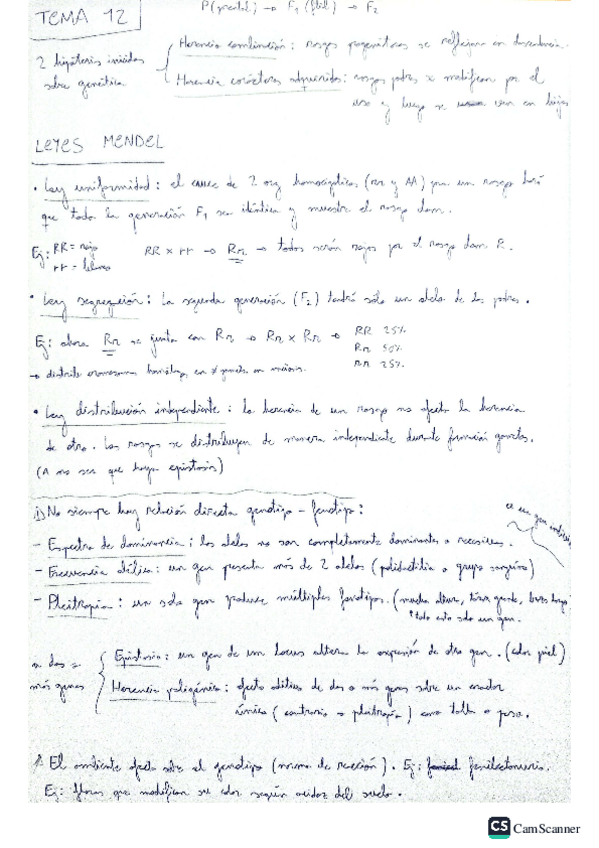 TEMA 12
P(parental) → F₁ (filial) → F₂
2 hipótesis iniciales sobre genética
Herencia combinación: rasgos progenitores se reflejan en descendencia.
Herencia caracteres adquiridos: rasgos padres se modifican por el
uso y luego se ven en hijos
LEYES MENDEL
• Ley uniformidad: el cruce de 2 org homocigóticos (rr y AA) para un rasgo hará
que toda la generación F₁ sea idéntica y muestre el rasgo dom.
Eg: RR = rojo
rr = blanco
RR x rr → Rr → todos serán rojos por el rasgo dom R.
• Ley segregación: La segunda generación (F₂) tendrá sólo un alelo de los padres.
Eg: ahora Rr se junta con Rr → Rr x Rr →
RR 25%
Rr 50%
rr 25%
→ distribución cromosomas homólogos en gametos en meiosis.
• Ley distribución independiente: la herencia de un rasgo no afecta la herencia
de otro. Los rasgos se distribuyen de manera independiente durante formación gametos.
(A no ser que haya epistasis)
1) No siempre hay relación directa genotipo - fenotipo:
- Espectro de dominancia: los alelos no son completamente dominantes o recesivos.
- Frecuencia alélica: un gen presenta más de 2 alelos (polidactilia o grupo sanguíneo)
- Pleitropía: un solo gen produce múltiples fenotipos. (mucha altura,
*todo esto solo un gen.
a dos o más genes
Epistasia: un gen de un locus altera la expresión de otro gen. (color piel)
Herencia poligénica: efecto aditivo de dos o más genes sobre un carácter
único (contrario a pleitropía) como talla o peso.
El ambiente afecta sobre el genotipo (norma de reacción). Eg: fenilcetonuria.
Eg: flores que modifican su color según acidez del suelo.
CS CamScanner